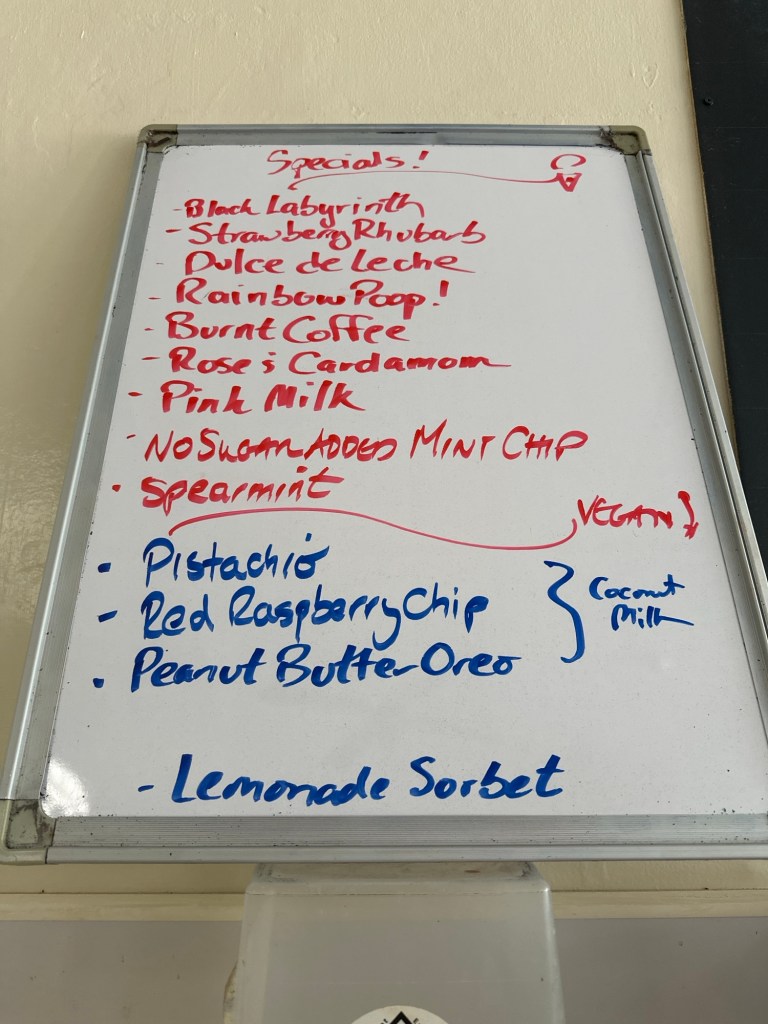 Specials!
- Black Labyrinth
- Strawberry Rhubarb
Dulce de Leche
- Rainbow Poop!
- Burnt Coffee
- Rose & Cardamom
- Pink Milk
- NO SUGAR ADDED MINT CHIP
- Spearmint
VEGAN
- Pistachio
- Red Raspberry Chip
- Peanut Butter Oreo
Coconut
Milk
- Lemonade Sorbet